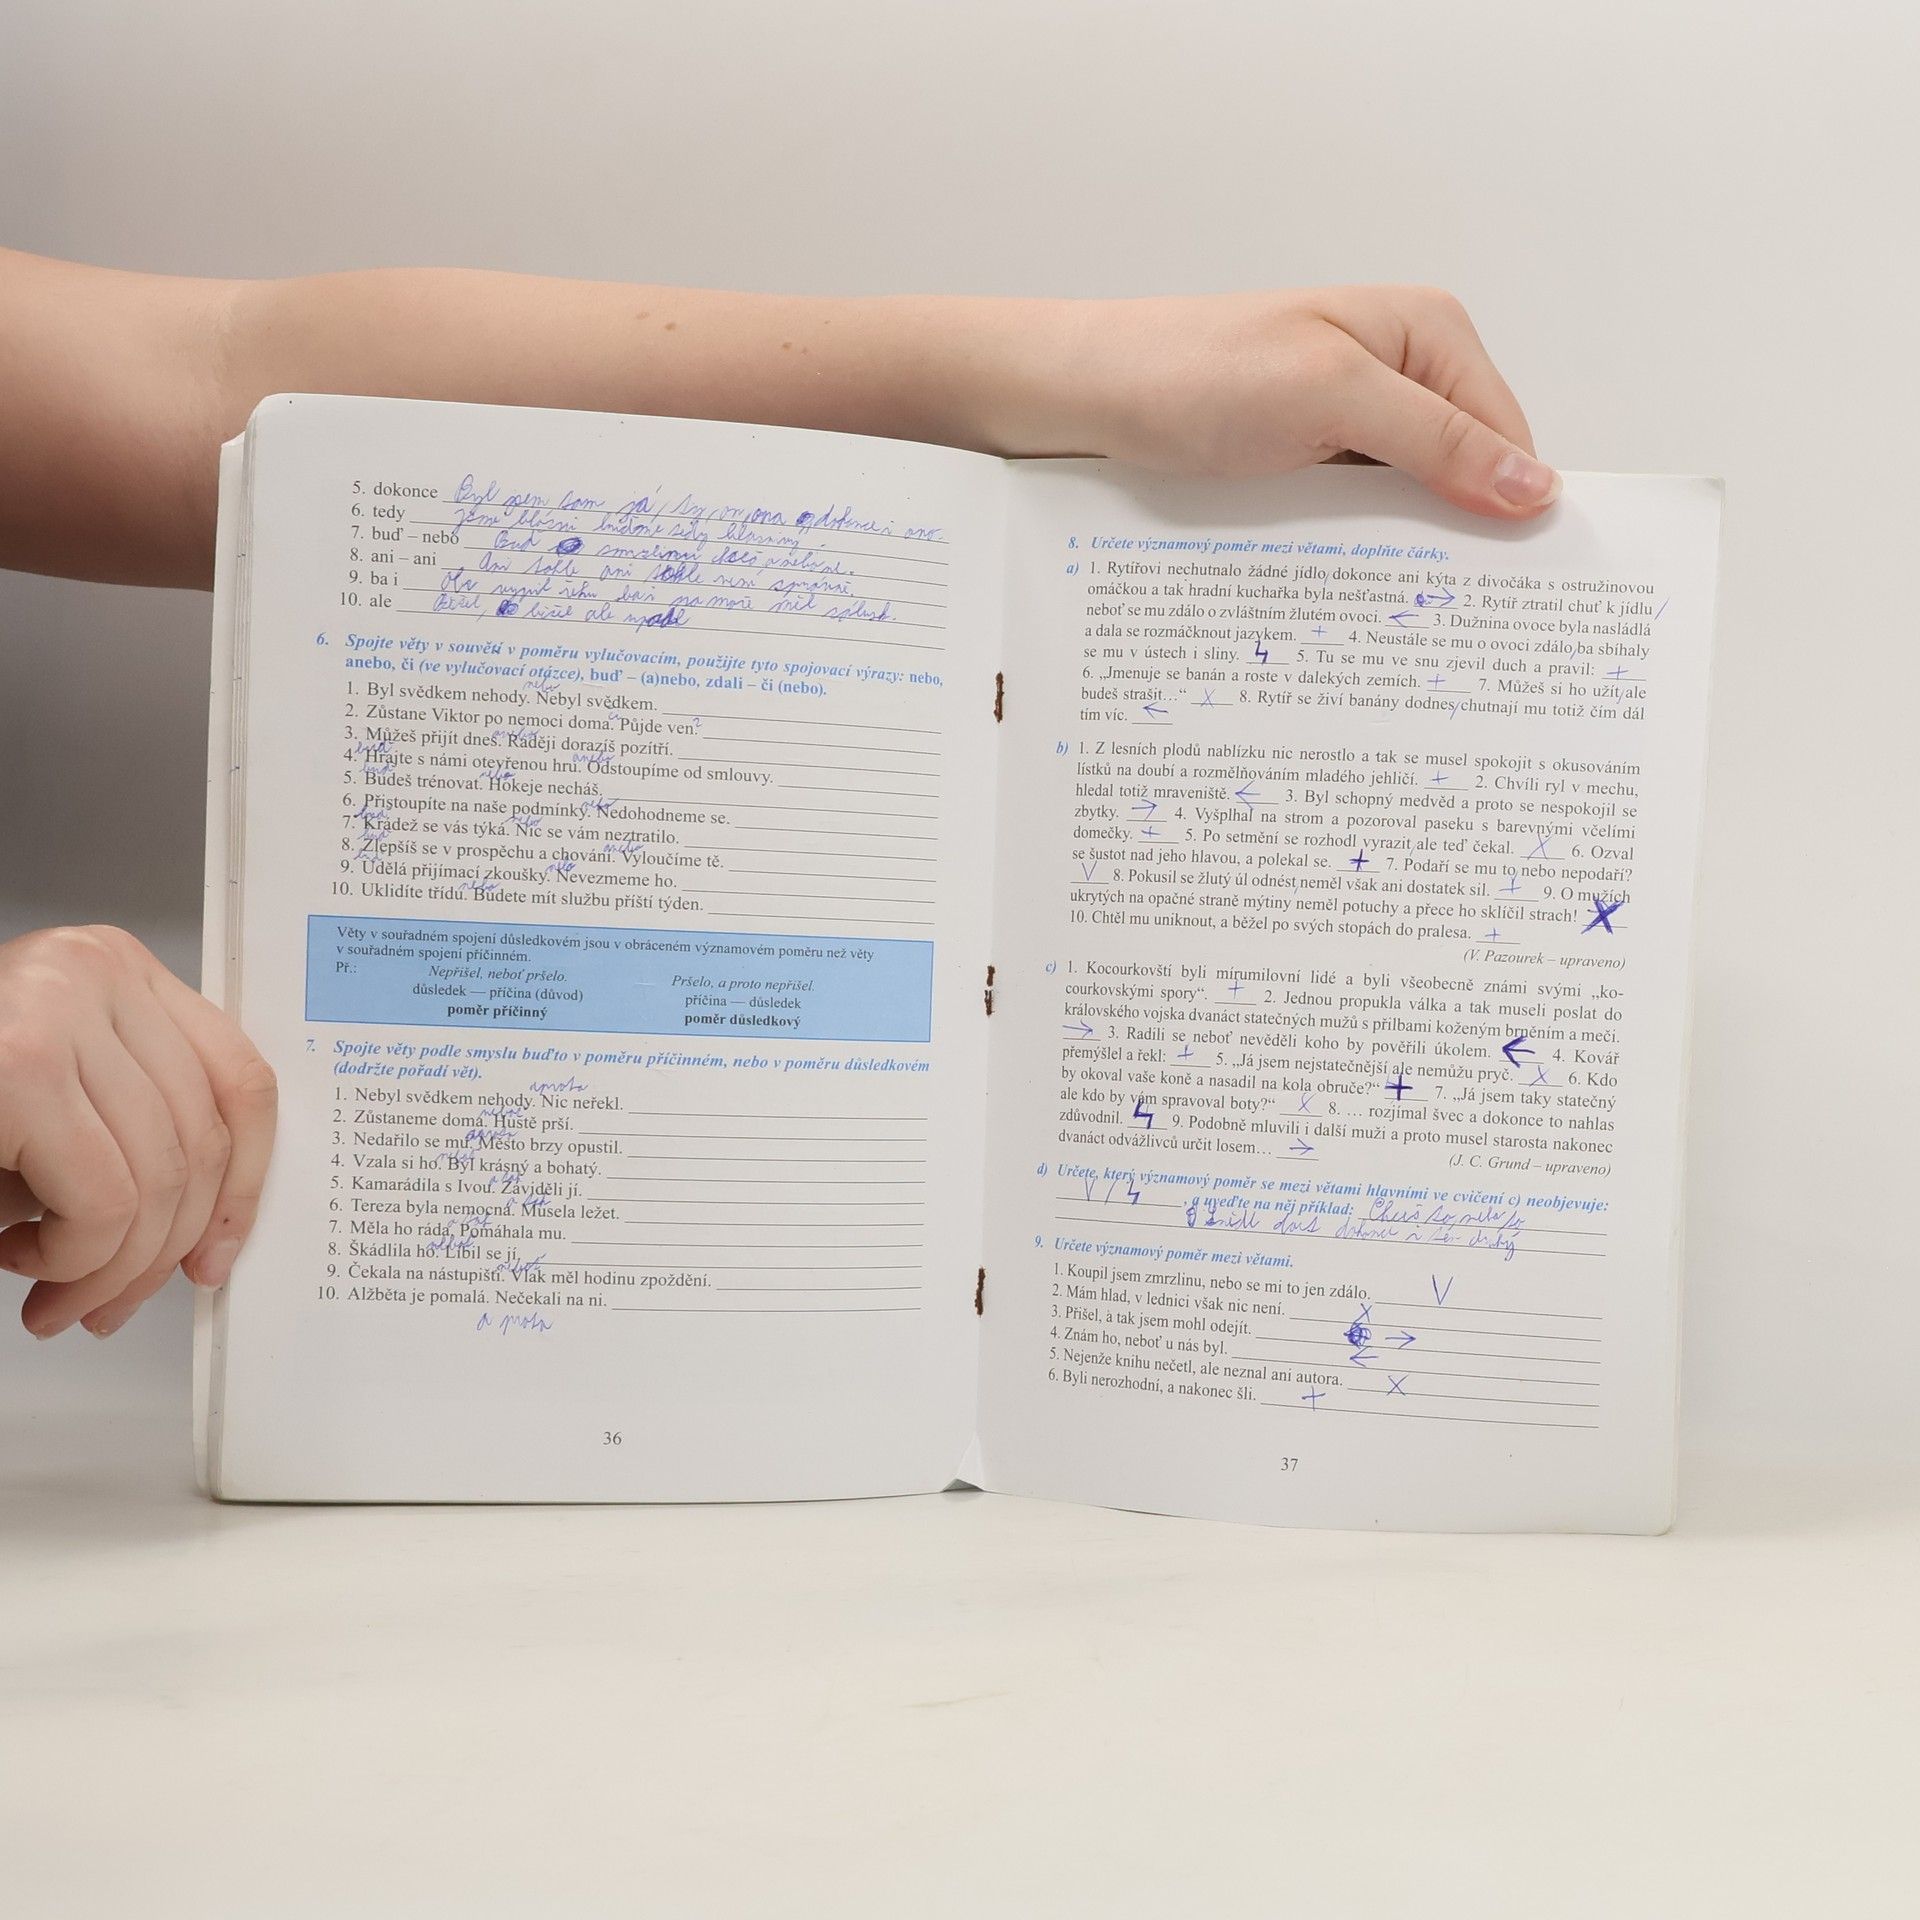 5. dokonce Byl jsem tam já, ty, on, ona dokonce i ono.
6. tedy Jsme hlavní
7. buď – nebo Buď zmrzlinu
8. ani – ani Ani tohle ani tohle není správně.
9. ba i vypil řeku ba i na moře měl
10. ale Běžel, běžel ale upadl
6. Spojte věty v souvětí v poměru vylučovacím, použijte tyto spojovací výrazy: nebo,
anebo, či (ve vylučovací otázce), buď – (a)nebo, zdali – či (nebo).
nebo
1. Byl svědkem nehody. Nebyl svědkem.
či ?
2. Zůstane Viktor po nemoci doma. Půjde ven.
anebo
3. Můžeš přijít dnes. Raději dorazíš pozítří.
buď anebo
4. Hrajte s námi otevřenou hru. Odstoupíme od smlouvy.
buď nebo
5. Budeš trénovat. Hokeje necháš.
nebo
6. Přistoupíte na naše podmínky. Nedohodneme se.
buď nebo
7. Krádež se vás týká. Nic se vám neztratilo.
buď anebo
8. Zlepšíš se v prospěchu a chování. Vyloučíme tě.
buď nebo
9. Udělá přijímací zkoušky. Nevezmeme ho.
nebo
10. Uklidíte třídu. Budete mít službu příští týden.
Věty v souřadném spojení důsledkovém jsou v obráceném významovém poměru než věty
v souřadném spojení příčinném.
Př.: Nepřišel, neboť pršelo. Pršelo, a proto nepřišel.
důsledek — příčina (důvod) příčina — důsledek
poměr příčinný poměr důsledkový
7. Spojte věty podle smyslu buďto v poměru příčinném, nebo v poměru důsledkovém
(dodržte pořadí vět).
a proto
1. Nebyl svědkem nehody. Nic neřekl.
neboť
2. Zůstaneme doma. Hustě prší.
a proto
3. Nedařilo se mu. Město brzy opustil.
neboť
4. Vzala si ho. Byl krásný a bohatý.
a tak
5. Kamarádila s Ivou. Záviděli jí.
a tak
6. Tereza byla nemocná. Musela ležet.
a tak
7. Měla ho ráda. Pomáhala mu.
neboť
8. Škádlila ho. Líbil se jí.
neboť
9. Čekala na nástupišti. Vlak měl hodinu zpoždění.
10. Alžběta je pomalá. Nečekali na ni.
a proto
36
8. Určete významový poměr mezi větami, doplňte čárky.
a) 1. Rytířovi nechutnalo žádné jídlo, dokonce ani kýta z divočáka s ostružinovou
omáčkou a tak hradní kuchařka byla nešťastná. → 2. Rytíř ztratil chuť k jídlu,
neboť se mu zdálo o zvláštním žlutém ovoci. ← 3. Dužnina ovoce byla nasládlá
a dala se rozmáčknout jazykem. + 4. Neustále se mu o ovoci zdálo, ba sbíhaly
se mu v ústech i sliny. 5. Tu se mu ve snu zjevil duch a pravil: +
6. „Jmenuje se banán a roste v dalekých zemích. + 7. Můžeš si ho užít, ale
budeš strašit…“ X 8. Rytíř se živí banány dodnes, chutnají mu totiž čím dál
tím víc. ←
b) 1. Z lesních plodů nablízku nic nerostlo a tak se musel spokojit s okusováním
lístků na doubí a rozmělňováním mladého jehličí. + 2. Chvíli ryl v mechu,
hledal totiž mraveniště. ← 3. Byl schopný medvěd a proto se nespokojil se
zbytky. → 4. Vyšplhal na strom a pozoroval paseku s barevnými včelími
domečky. + 5. Po setmění se rozhodl vyrazit, ale teď čekal. X 6. Ozval
se šustot nad jeho hlavou, a polekal se. + 7. Podaří se mu to, nebo nepodaří?
V 8. Pokusil se žlutý úl odnést, neměl však ani dostatek sil. + 9. O mužích
ukrytých na opačné straně mýtiny neměl potuchy a přece ho sklíčil strach! X
10. Chtěl mu uniknout, a běžel po svých stopách do pralesa. +
(V. Pazourek – upraveno)
c) 1. Kocourkovští byli mírumilovní lidé a byli všeobecně známi svými „ko-
courkovskými spory“. + 2. Jednou propukla válka a tak museli poslat do
královského vojska dvanáct statečných mužů s přilbami koženým brněním a meči.
→ 3. Radili se neboť nevěděli koho by pověřili úkolem. ← 4. Kovář
přemýšlel a řekl: + 5. „Já jsem nejstatečnější, ale nemůžu pryč. X 6. Kdo
by okoval vaše koně a nasadil na kola obruče?“ + 7. „Já jsem taky statečný
ale kdo by vám spravoval boty?“ X 8. … rozjímal švec a dokonce to nahlas
zdůvodnil. 9. Podobně mluvili i další muži a proto musel starosta nakonec
dvanáct odvážlivců určit losem… →
(J. C. Grund – upraveno)
d) Určete, který významový poměr se mezi větami hlavními ve cvičení c) neobjevuje:
V / , a uveďte na něj příklad: Chceš to, nebo to
dort dokonce i ten druhý
9. Určete významový poměr mezi větami.
1. Koupil jsem zmrzlinu, nebo se mi to jen zdálo. V
2. Mám hlad, v lednici však nic není. X
3. Přišel, a tak jsem mohl odejít. →
4. Znám ho, neboť u nás byl. ←
5. Nejenže knihu nečetl, ale neznal ani autora. X
6. Byli nerozhodní, a nakonec šli. +
37